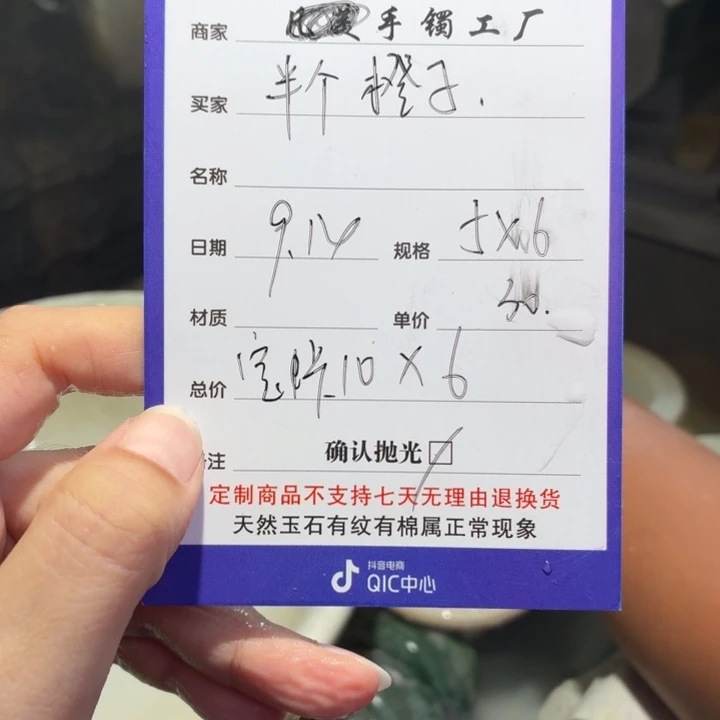 商家 手镯工厂
买家 半个橙子.
名称
日期 9.14 规格 5×6
材质 单价 30.
总价 10×6
注 确认抛光☐
定制商品不支持七天无理由退换货
天然玉石有纹有棉属正常现象
抖音电商
QIC中心